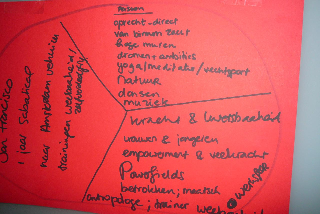 Persoon
oprecht - direct
van binnen zacht
hoge muren
dromen + ambities
yoga/meditatie/vechtsport
natuur
dansen
muziek
kracht & kwetsbaarheid
vrouwen & jongeren
empowerment & veerkracht
betrokken; maatsch
antropologe; trainer
San Francisco
1 jaar
naar Amsterdam verhuizen
trainingen weerbaarheid/